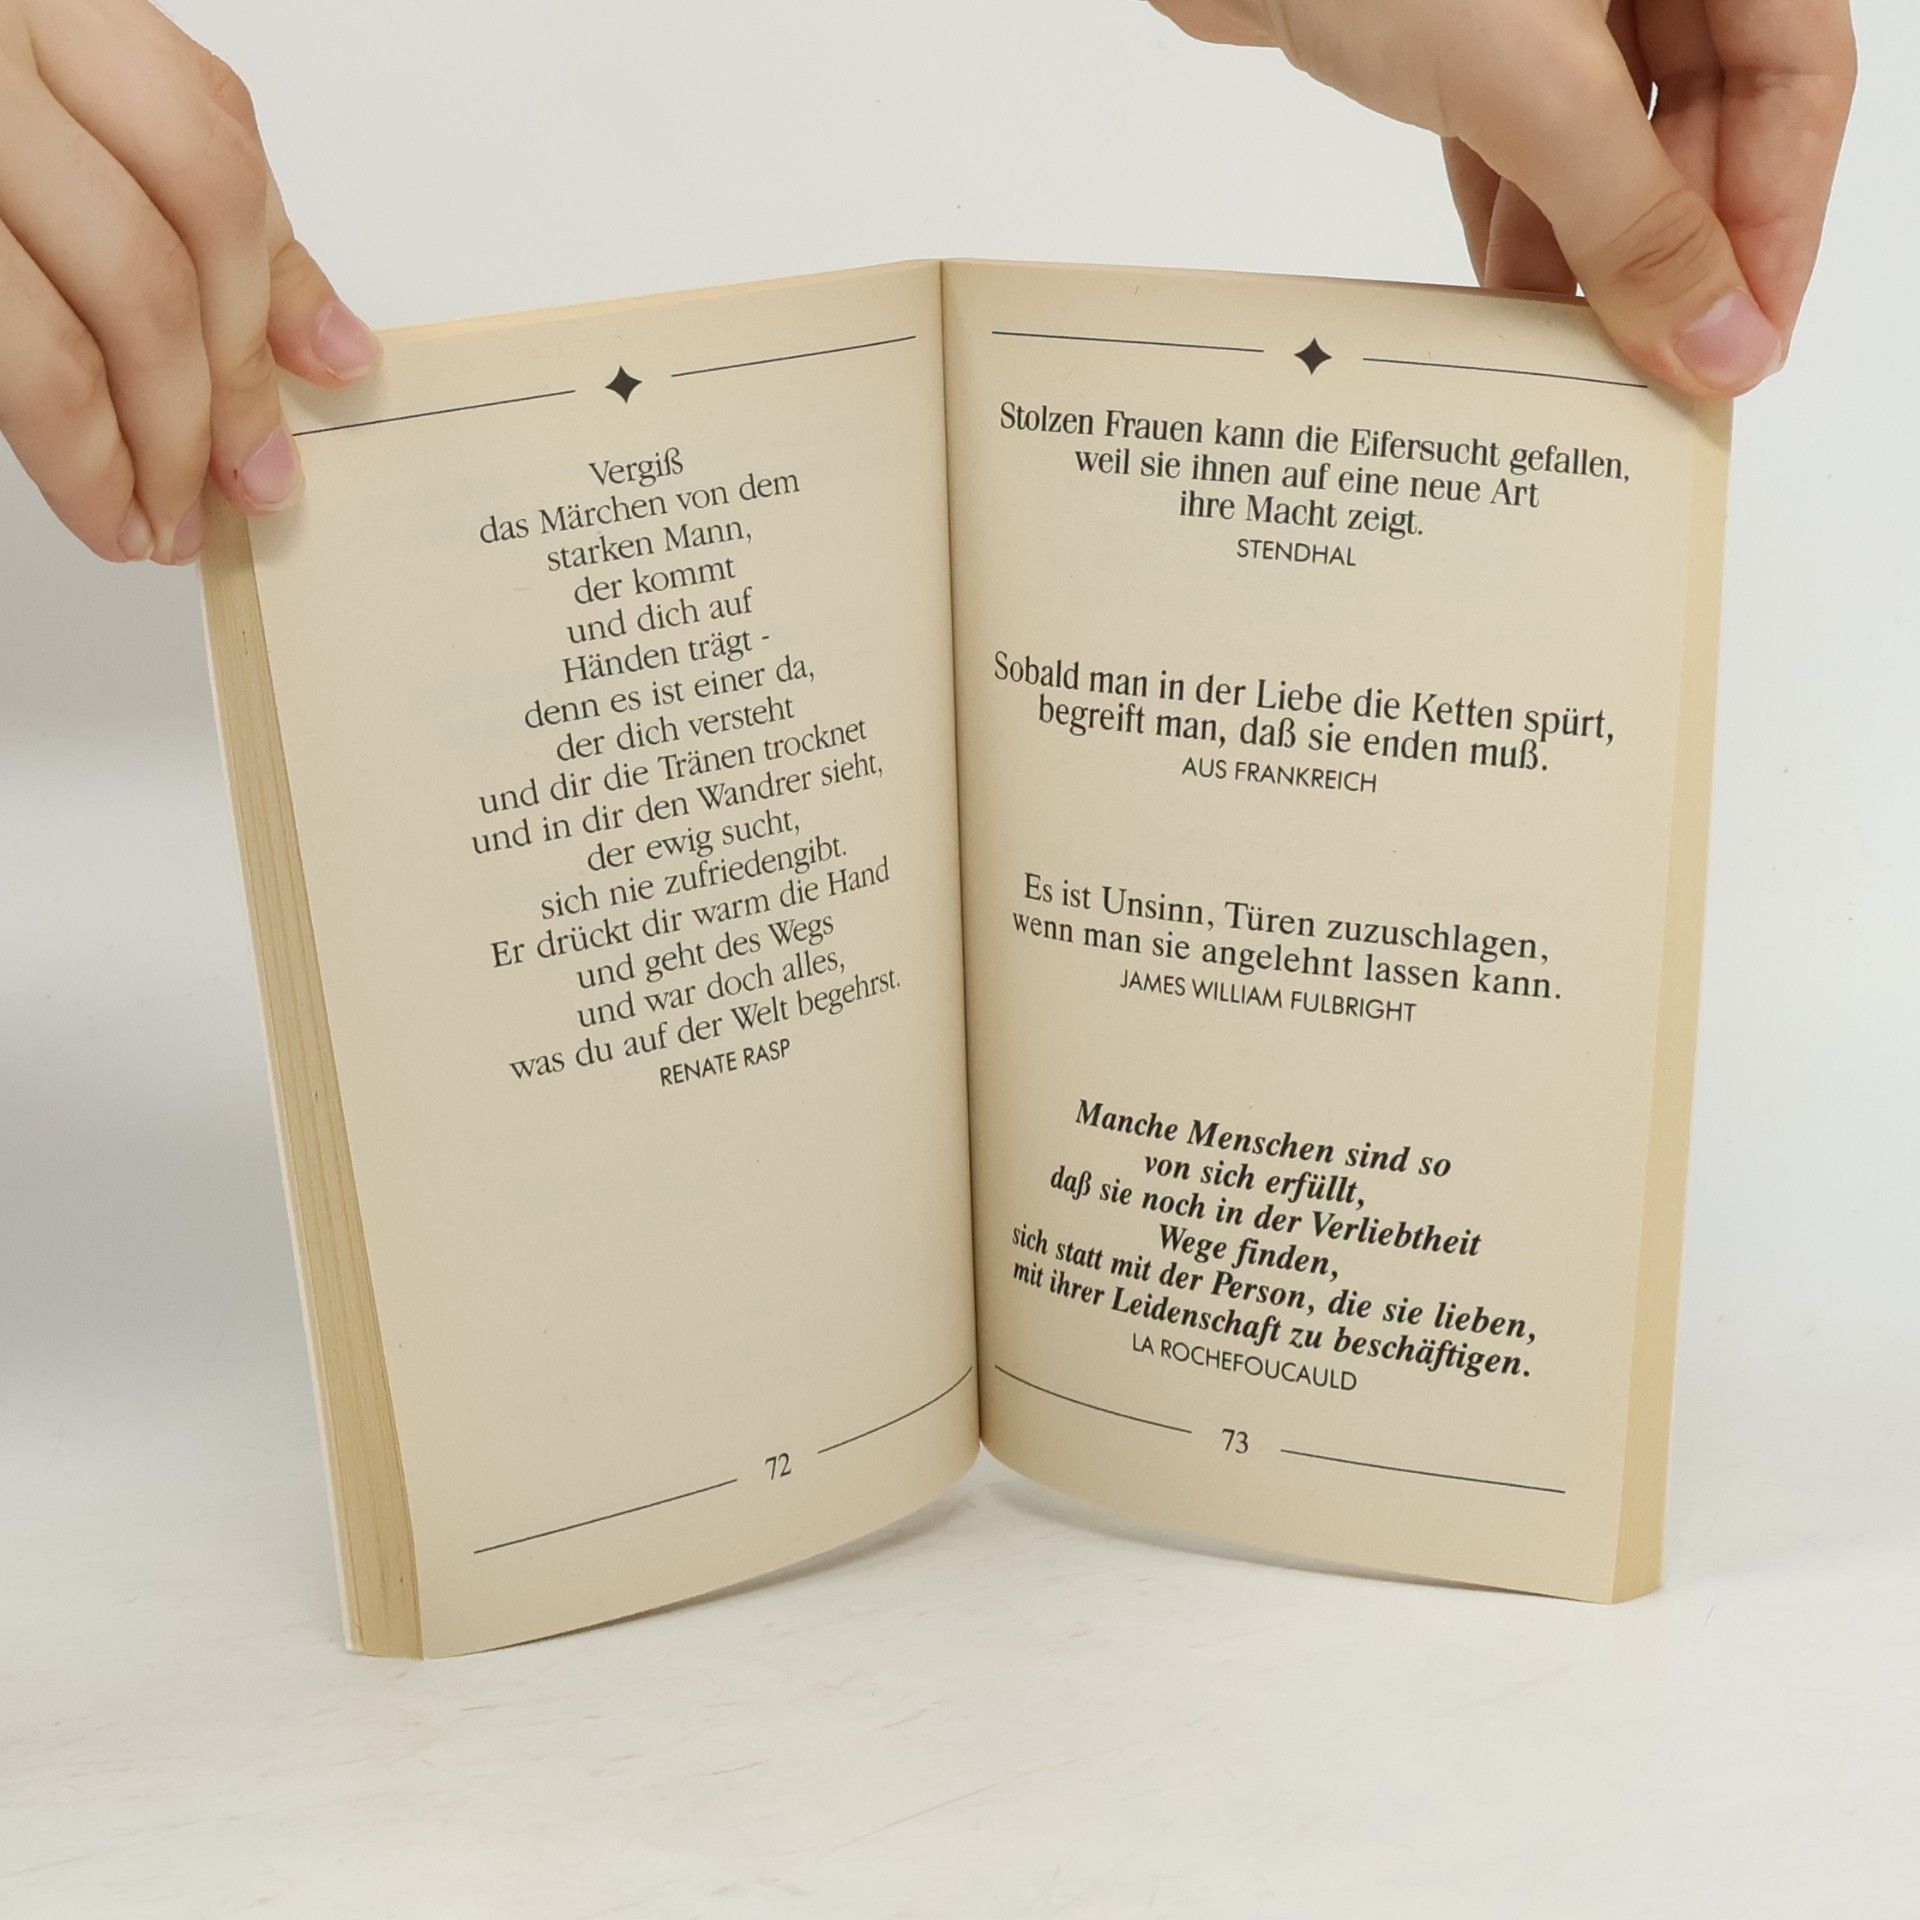 Vergiß
das Märchen von dem
starken Mann,
der kommt
und dich auf
Händen trägt -
denn es ist einer da,
der dich versteht
und dir die Tränen trocknet
und in dir den Wandrer sieht,
der ewig sucht,
sich nie zufriedengibt.
Er drückt dir warm die Hand
und geht des Wegs
und war doch alles,
was du auf der Welt begehrst.
RENATE RASP
72
Stolzen Frauen kann die Eifersucht gefallen,
weil sie ihnen auf eine neue Art
ihre Macht zeigt.
STENDHAL
Sobald man in der Liebe die Ketten spürt,
begreift man, daß sie enden muß.
AUS FRANKREICH
Es ist Unsinn, Türen zuzuschlagen,
wenn man sie angelehnt lassen kann.
JAMES WILLIAM FULBRIGHT
Manche Menschen sind so
von sich erfüllt,
daß sie noch in der Verliebtheit
Wege finden,
sich statt mit der Person, die sie lieben,
mit ihrer Leidenschaft zu beschäftigen.
LA ROCHEFOUCAULD
73